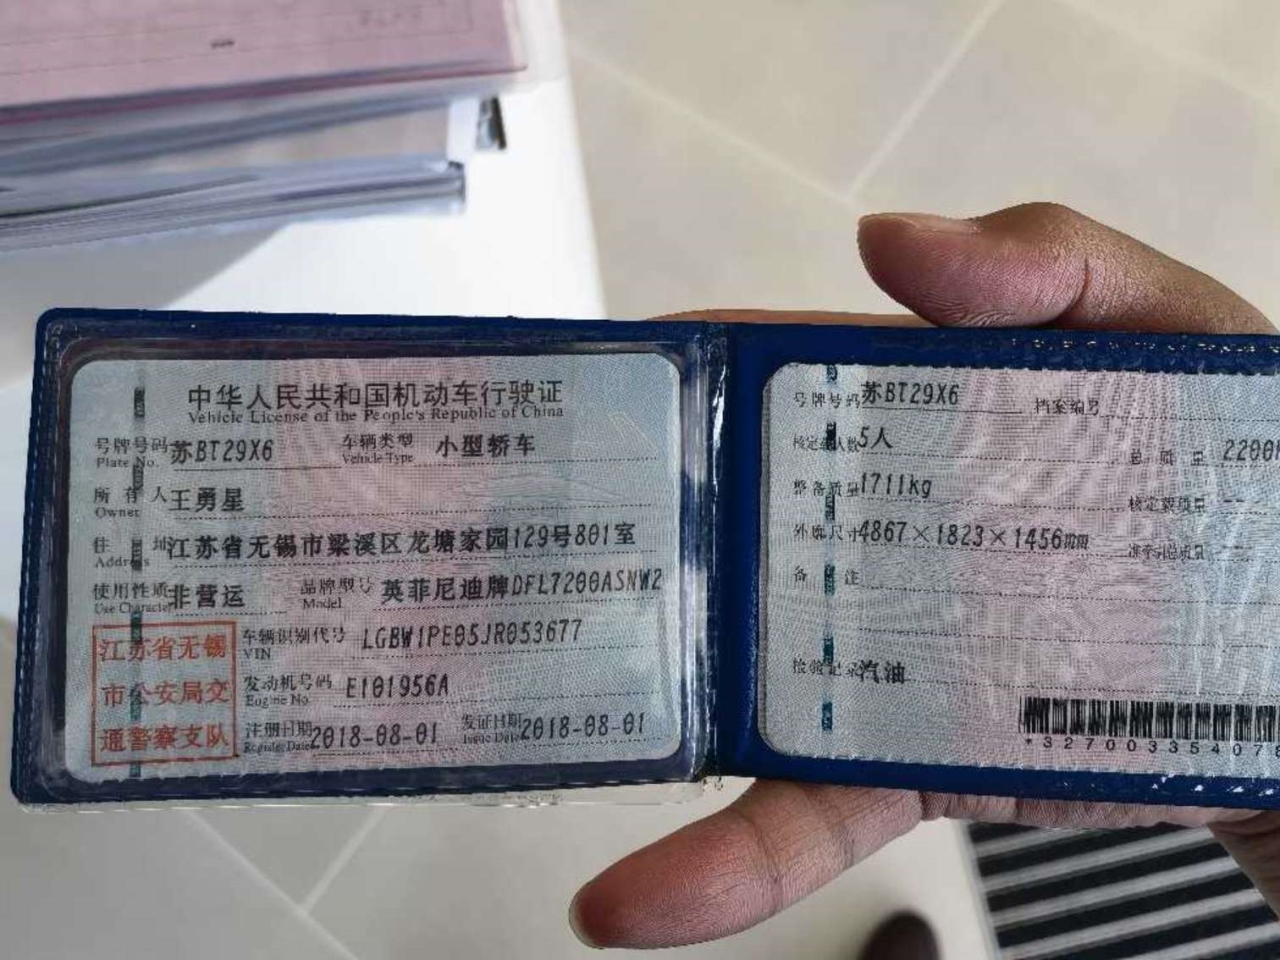 中华人民共和国机动车行驶证
Vehicle License of the People's Republic of China
号牌号码 苏BT29X6 车辆类型 小型轿车
Plate No. Vehicle Type
所有人 王勇星
Owner
住址 江苏省无锡市梁溪区龙塘家园129号801室
Address
使用性质 非营运 品牌型号 英菲尼迪牌DFL7200ASNW2
Use Character Model
江苏省无锡
市公安局交
通警察支队
车辆识别代号 LGBW1PE05JR053677
VIN
发动机号码 E101956A
Engine No.
注册日期 2018-08-01 发证日期 2018-08-01
Register Date Issue Date
号牌号码 苏BT29X6 档案编号
核定载人数 5人 总质量 2200k
整备质量 1711kg 核定载质量 --
外廓尺寸 4867×1823×1456mm 准牵引总质量 --
备注
检验记录 汽油
*327003354078